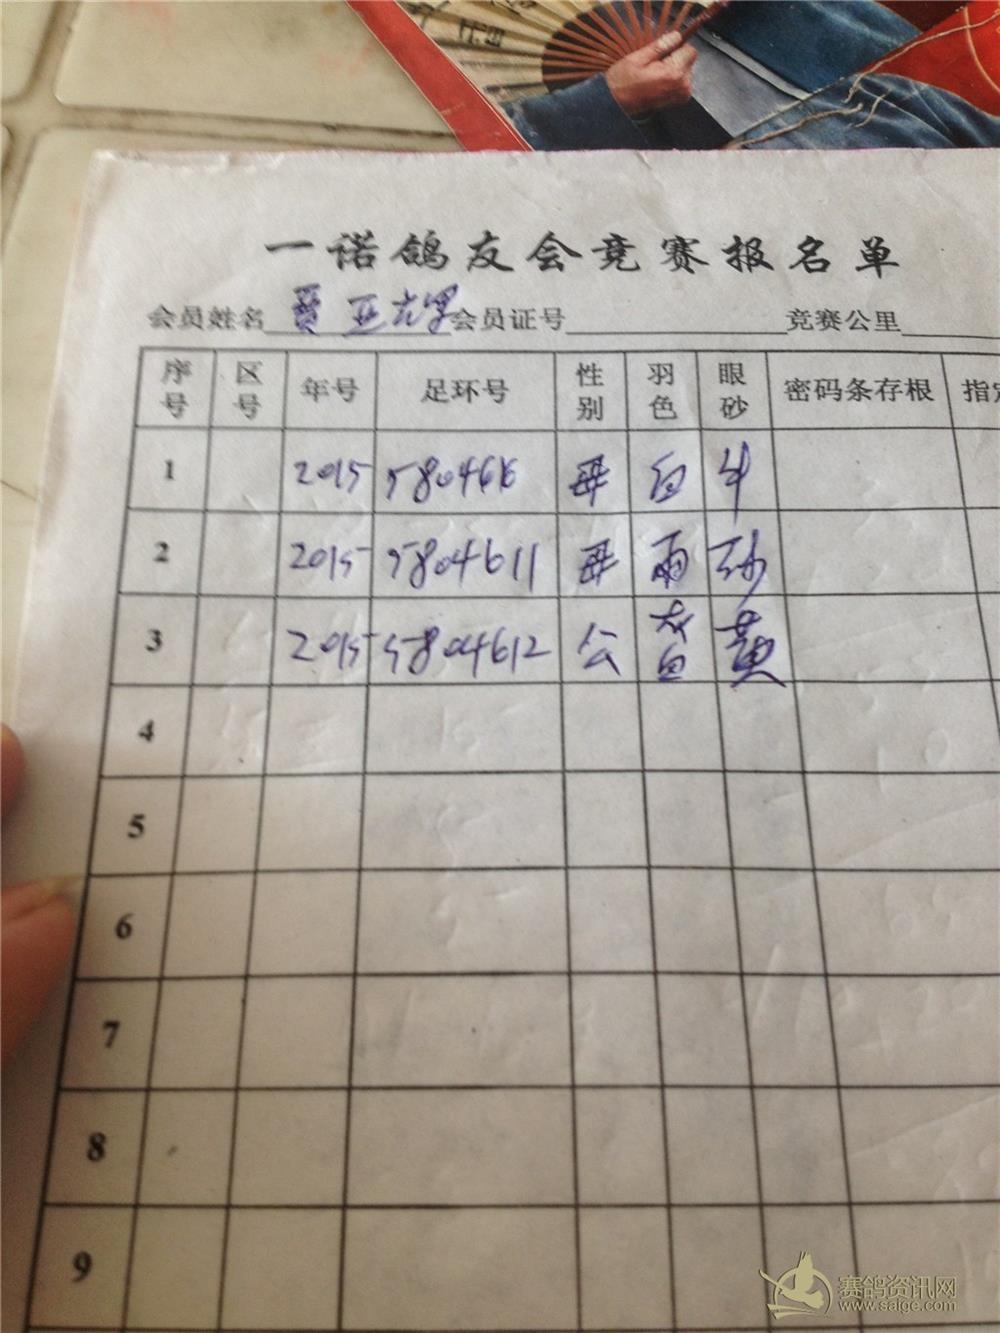 一诺鸽友会竞赛报名单
会员姓名 贾亚 会员证号 竞赛公里
序号 区号 年号 足环号 性别 羽色 眼砂 密码条存根 指定
1 2015 5804616 母 白 牛
2 2015 5804611 母 雨 砂
3 2015 5804612 公 灰白 黄
4
5
6
7
8
9
赛鸽资讯网
www.saige.com